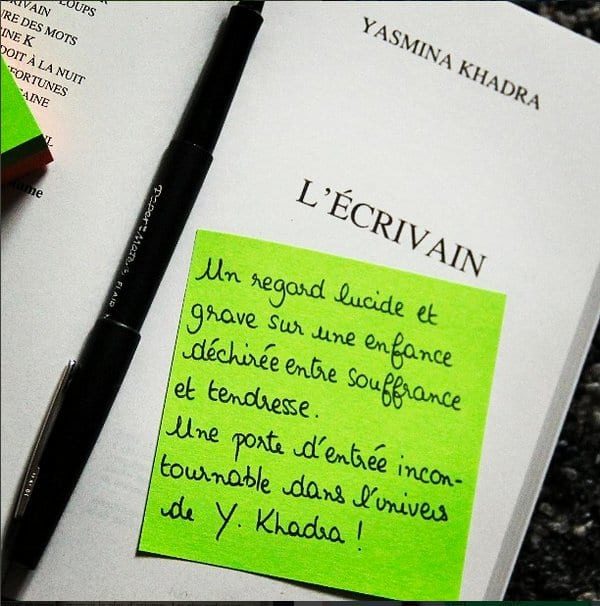 LOUPS
RIVAIN
URE DES MOTS
INE K
DOIT À LA NUIT
FORTUNES
AINE
UL
YASMINA KHADRA
L'ÉCRIVAIN
Un regard lucide et
grave sur une enfance
déchirée entre souffrance
et tendresse.
Une porte d'entrée incon-
tournable dans l'univers
de Y. Khadra !
Paper:Mate
FLAIR